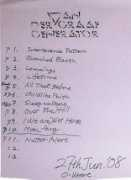 VAN
DER GRAAF
GENERATOR
1. Interference Pattern
2.
3. Lemmings
4. Lifetime
5. All That Before
6. Childlike Faith
7. Sleepwalkers
8. Over The Hill
9. (We Are) Not Here
10. Man-Erg
11. Nutter Alert
12.
13.
27th Jun '08